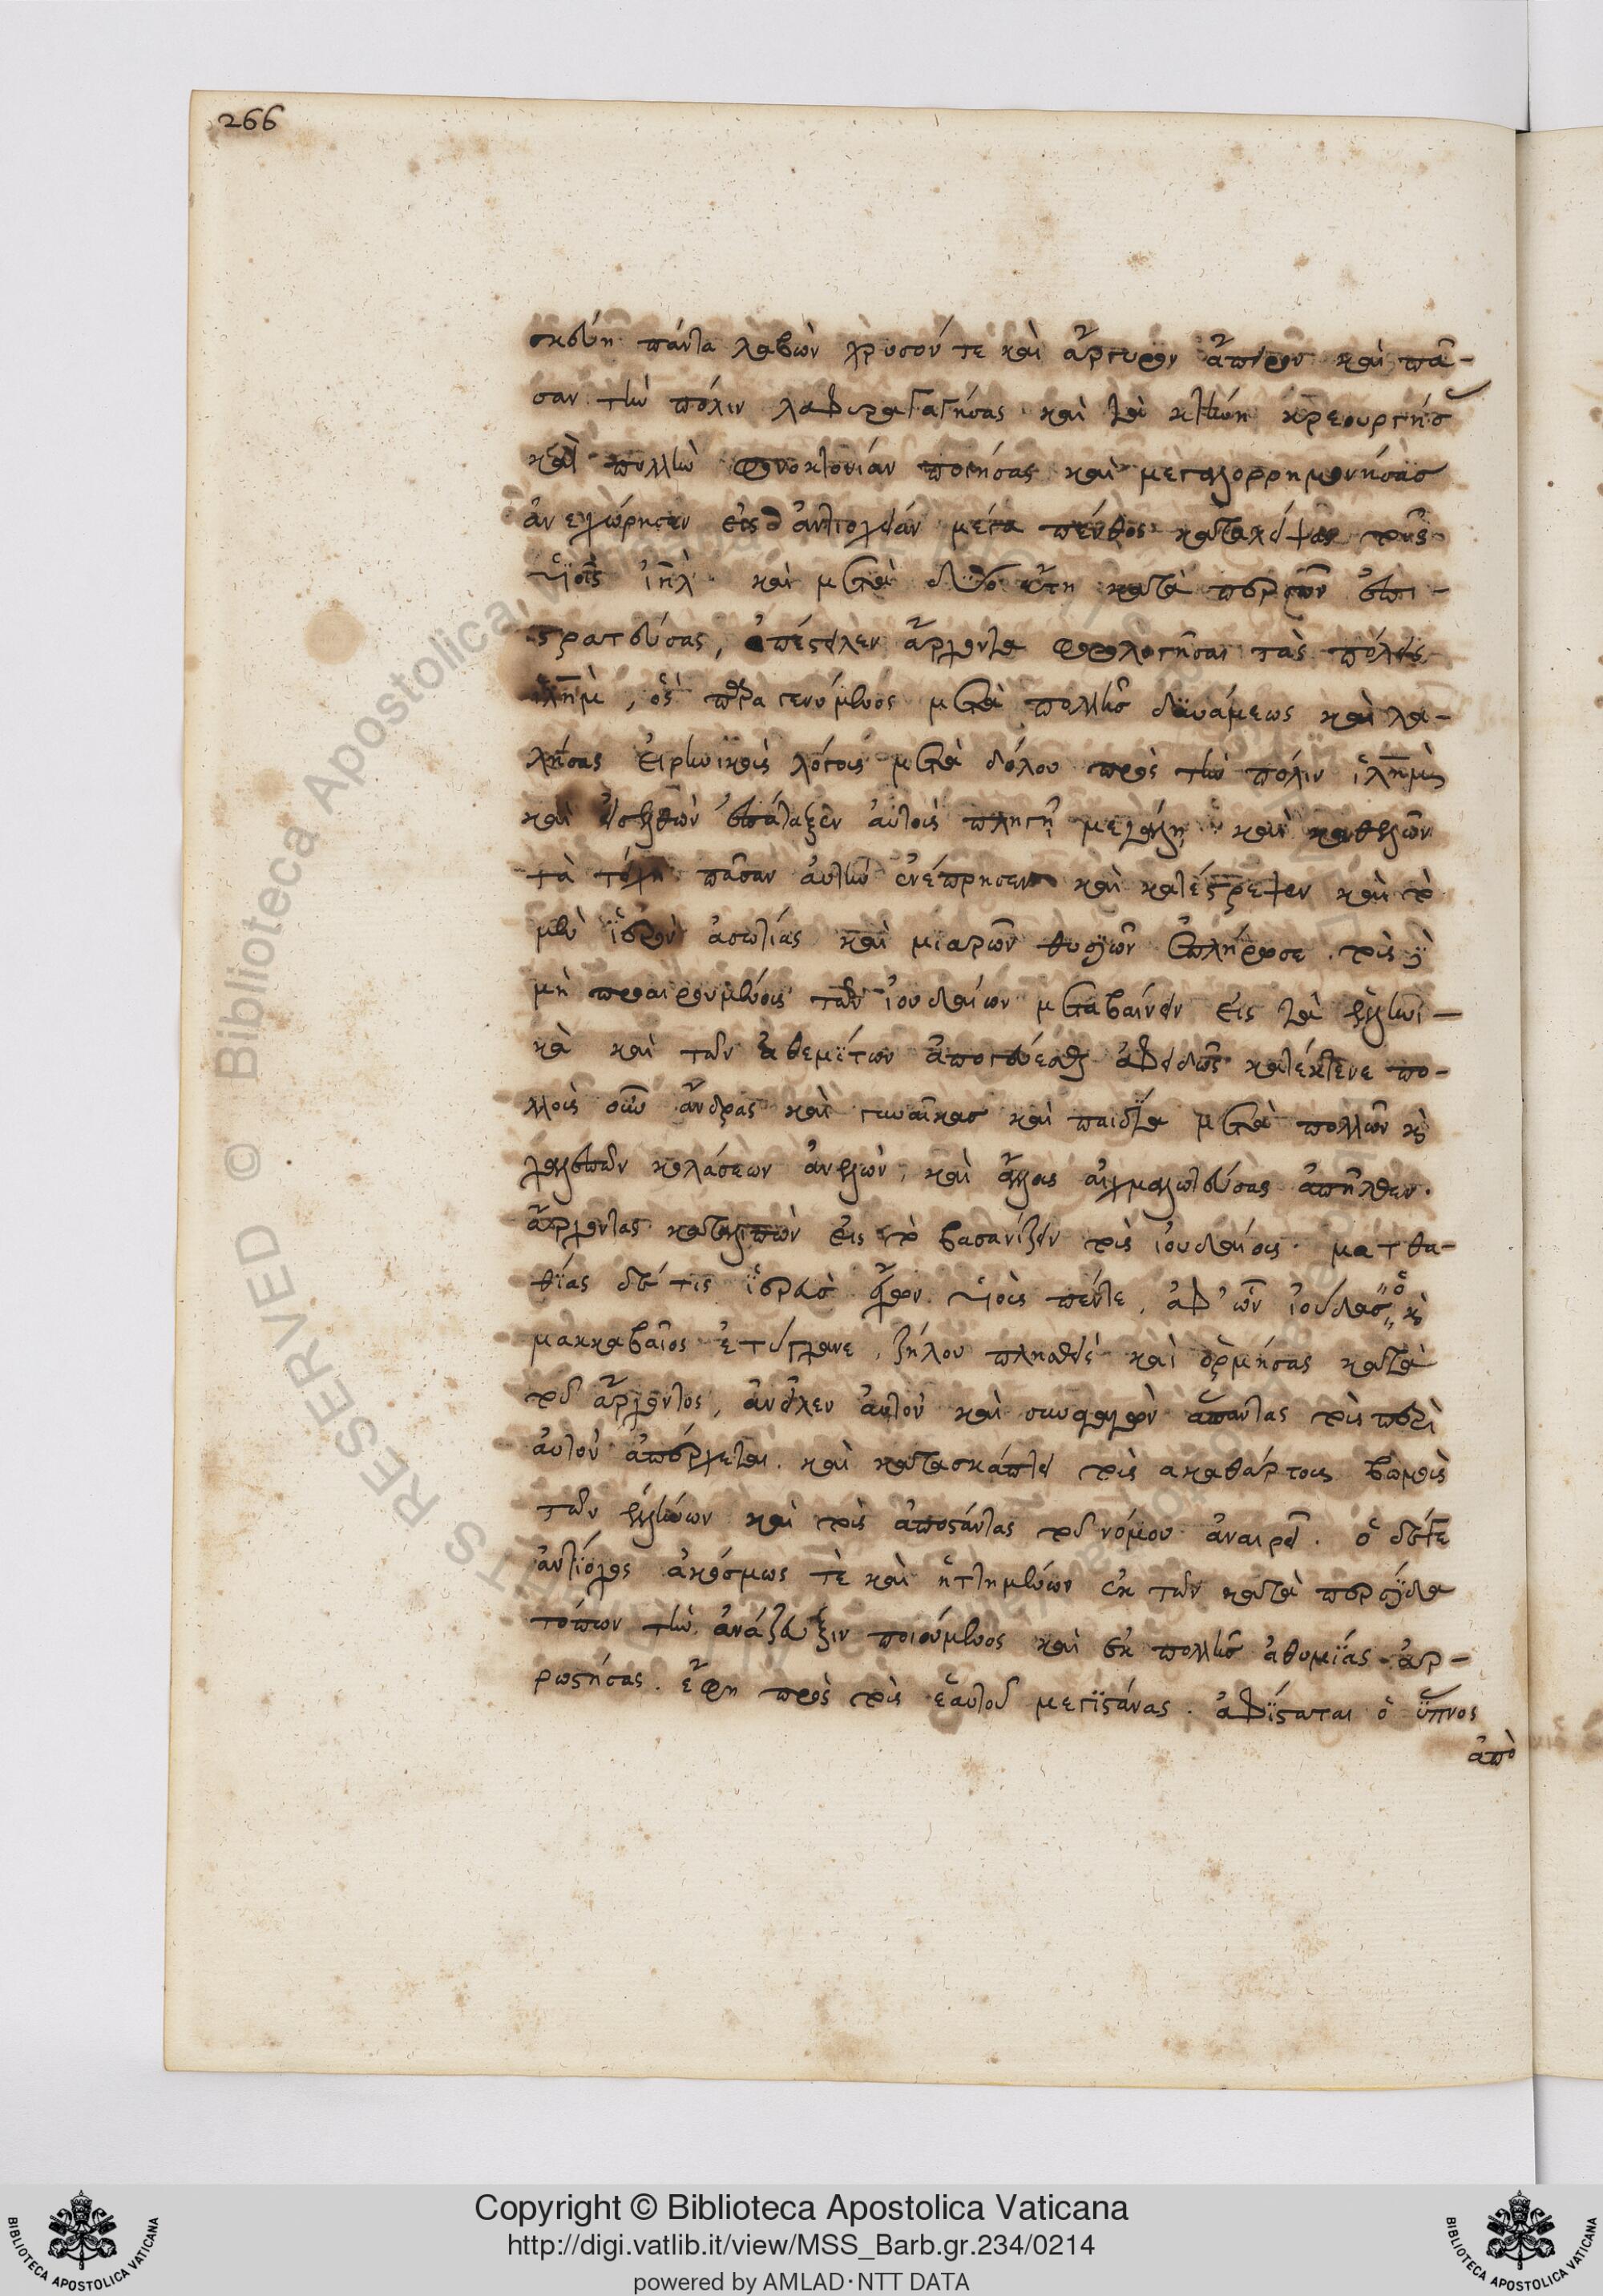 266
σκεύη πάντα λαβὼν χρυσόν τε καὶ ἄργυρον ἄπειρον καὶ πᾶ-
σαν τὴν πόλιν λαφυραγωγήσας καὶ τὰ κτήνη κρεουργήσας
καὶ πολλὴν φονοκτονίαν ποιήσας καὶ μεγαλορρημονήσας
ἀνεχώρησεν εἰς ἀντιοχείαν μέγα πένθος καταλείψας τοῖς
υἱοῖς ἰηλ. καὶ μετὰ δύο ἔτη κατὰ περσῶν ἐπι-
στρατεύσας, ἀπέστειλεν ἄρχοντα φορολογῆσαι τὰς πόλεις
ἰλημ, ὃς παραγενόμενος μετὰ πολλῆς δυνάμεως καὶ λα-
λήσας εἰρηνικοῖς λόγοις μετὰ δόλου πρὸς τὴν πόλιν ἰλημ
καὶ εἰσελθὼν ἐπάταξεν αὐτοὺς πληγῇ μεγάλῃ καὶ καθελὼν
τὰ τείχη πᾶσαν αὐτὴν ἐνέπρησεν καὶ κατέστρεψεν καὶ τὸ
μὲν ἱερὸν ἀσωτίας καὶ μιαρῶν θυσιῶν ἐπλήρωσε. τοὺς δὲ
μὴ προαιρουμένους τῶν ἰουδαίων μεταβαίνειν εἰς τὰ ἑλληνι-
κὰ καὶ τῶν ἀθεμίτων ἀπογεύεσθαι ἀφειδῶς κατέκτεινε πο-
λλοὺς οὖν ἄνδρας καὶ γυναῖκας καὶ παιδία μετὰ πολλῶν καὶ
χαλεπῶν κολάσεων ἀνελὼν, καὶ ἄλλους αἰχμαλωτεύσας ἀπῆλθεν.
ἄρχοντας καταλιπὼν εἰς τὸ βασανίζειν τοὺς ἰουδαίους. ματθα-
θίας δέ τις ἱερεὺς ἔχων υἱοὺς πέντε, ἀφ' ὧν ἰούδας ὁ καὶ
μακκαβαῖος ἐτύγχανε, ζήλου πλησθεὶς καὶ ὁρμήσας κατὰ
τοῦ ἄρχοντος, ἀνεῖλεν αὐτὸν καὶ συναγαγὼν ἅπαντας τοὺς περὶ
αὐτὸν ἀπέρχεται. καὶ κατασκάπτει τοὺς ἀκαθάρτους βωμοὺς
τῶν ἑλλήνων καὶ τοὺς ἀποστάντας τοῦ νόμου ἀναιρεῖ. ὁ δέ γε
ἀντίοχος ἀκόσμως τὲ καὶ ἡττημένων ἐκ τῶν κατὰ περσίδα
τόπων τὴν ἀνάζευξιν ποιούμενος καὶ ἐκ πολλῆς ἀθυμίας ἀρ-
ρωστήσας. ἔφη πρὸς τοὺς ἑαυτοῦ μεγιστάνας. ἀφίσταται ὁ ὕπνος
ἀπὸ
Copyright © Biblioteca Apostolica Vaticana
http://digi.vatlib.it/view/MSS_Barb.gr.234/0214
powered by AMLAD·NTT DATA
BIBLIOTECA APOSTOLICA VATICANA
BIBLIOTECA APOSTOLICA VATICANA